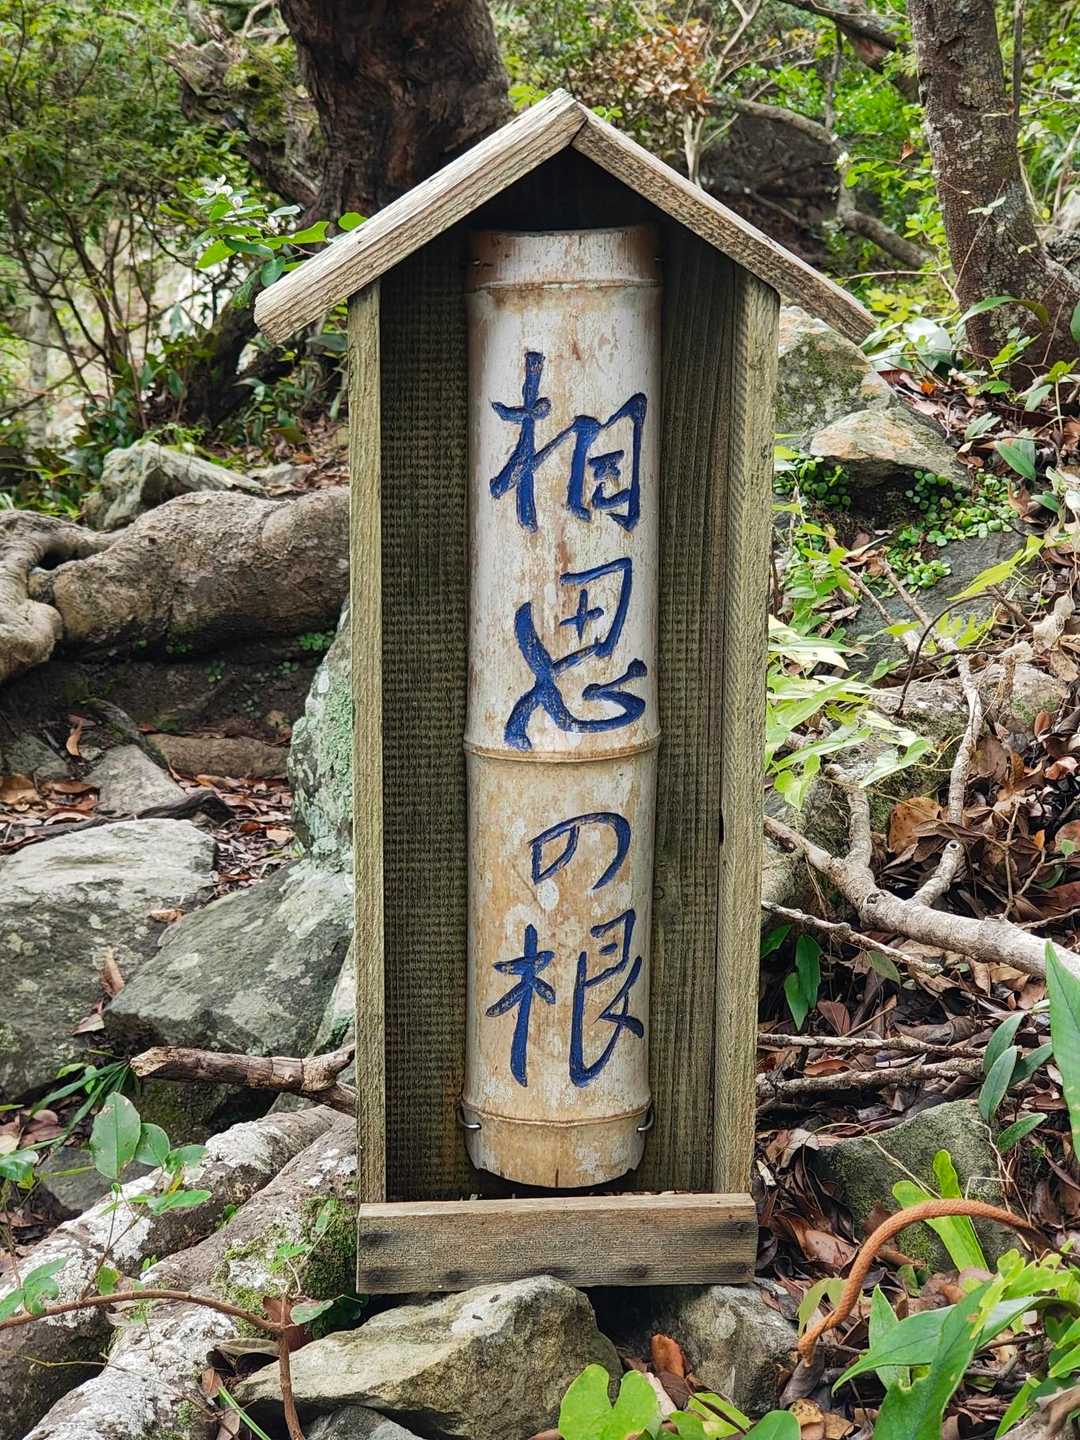 相思の根